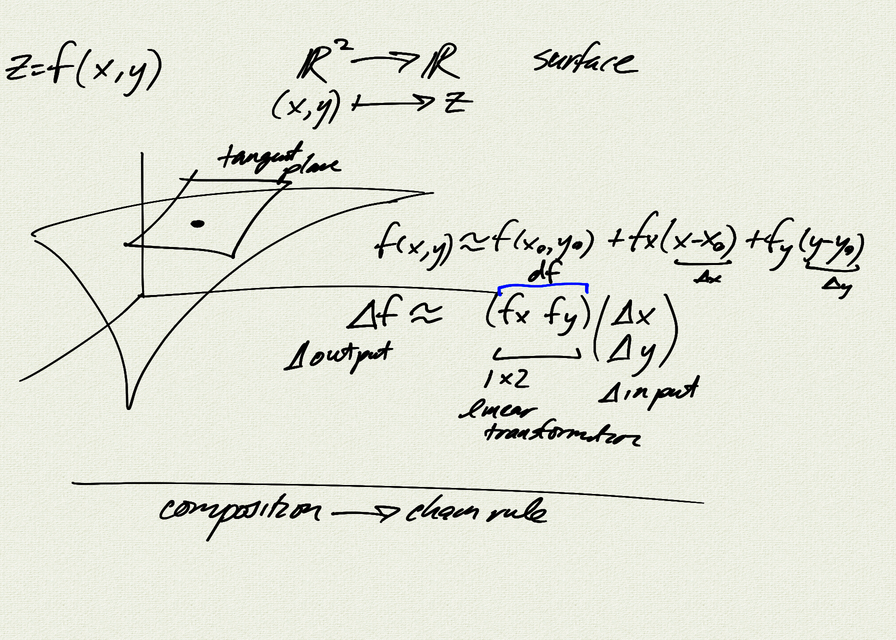 z=f(x,y) ℝ² → ℝ surface
(x,y) ↦ z
tangent plane
f(x,y) ≈ f(x₀,y₀) + fx(x-x₀) + fy(y-y₀)
df Δx Δy
Δf ≈ (fx fy) (Δx
Δy)
Δoutput
1×2 Δinput
linear
transformation
composition → chain rule